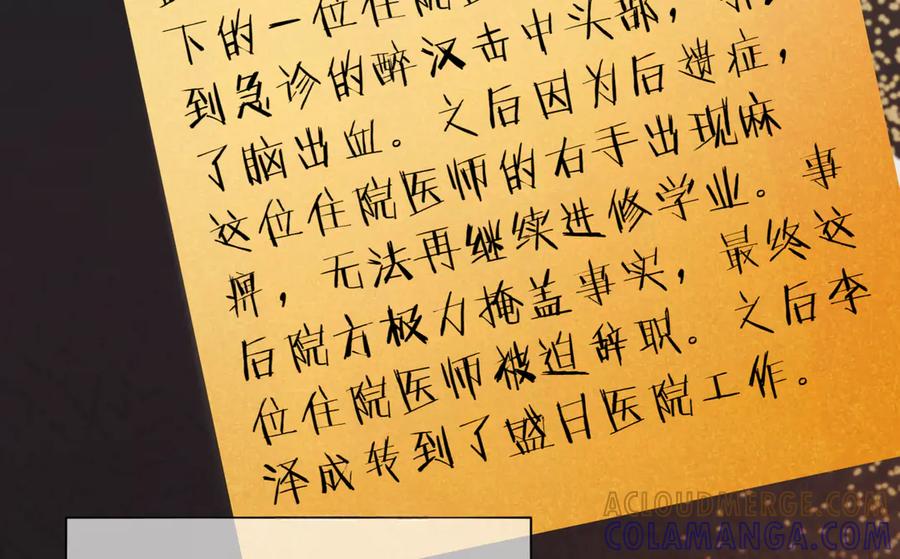 下的一位住院医
到急诊的醉汉击中头部，
了脑出血。之后因为后遗症，
这位住院医师的右手出现麻
痹，无法再继续进修学业。事
后院方极力掩盖事实，最终这
位住院医师被迫辞职。之后李
泽成转到了盛日医院工作。
ACLOUDMERGE.COM
COLAMANGA.COM